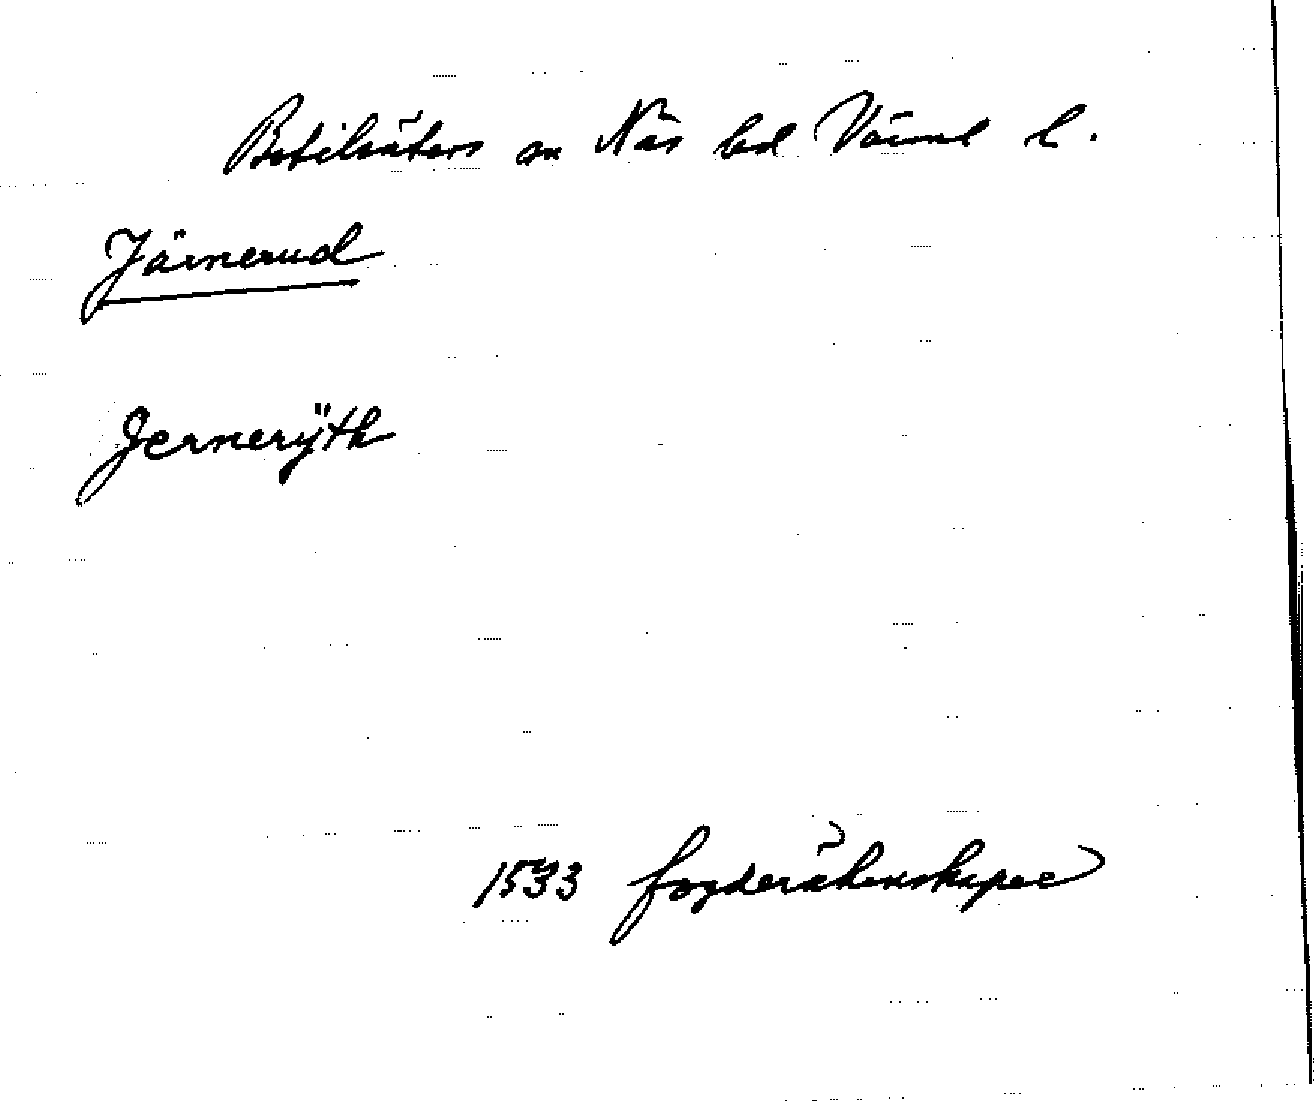 Botilsäters sn Näs hd Värml l.
Järnerud
Jernerÿth
1533 fogderäkenskaper